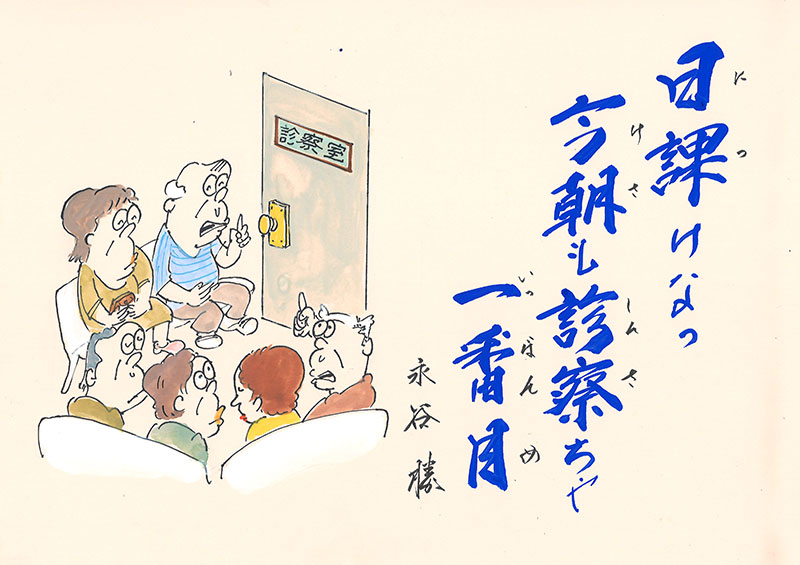 日課けなっ
にっ
今朝も診察ちゃ
けさ しんさ
一番目
いっばんめ
永谷 勝
診察室